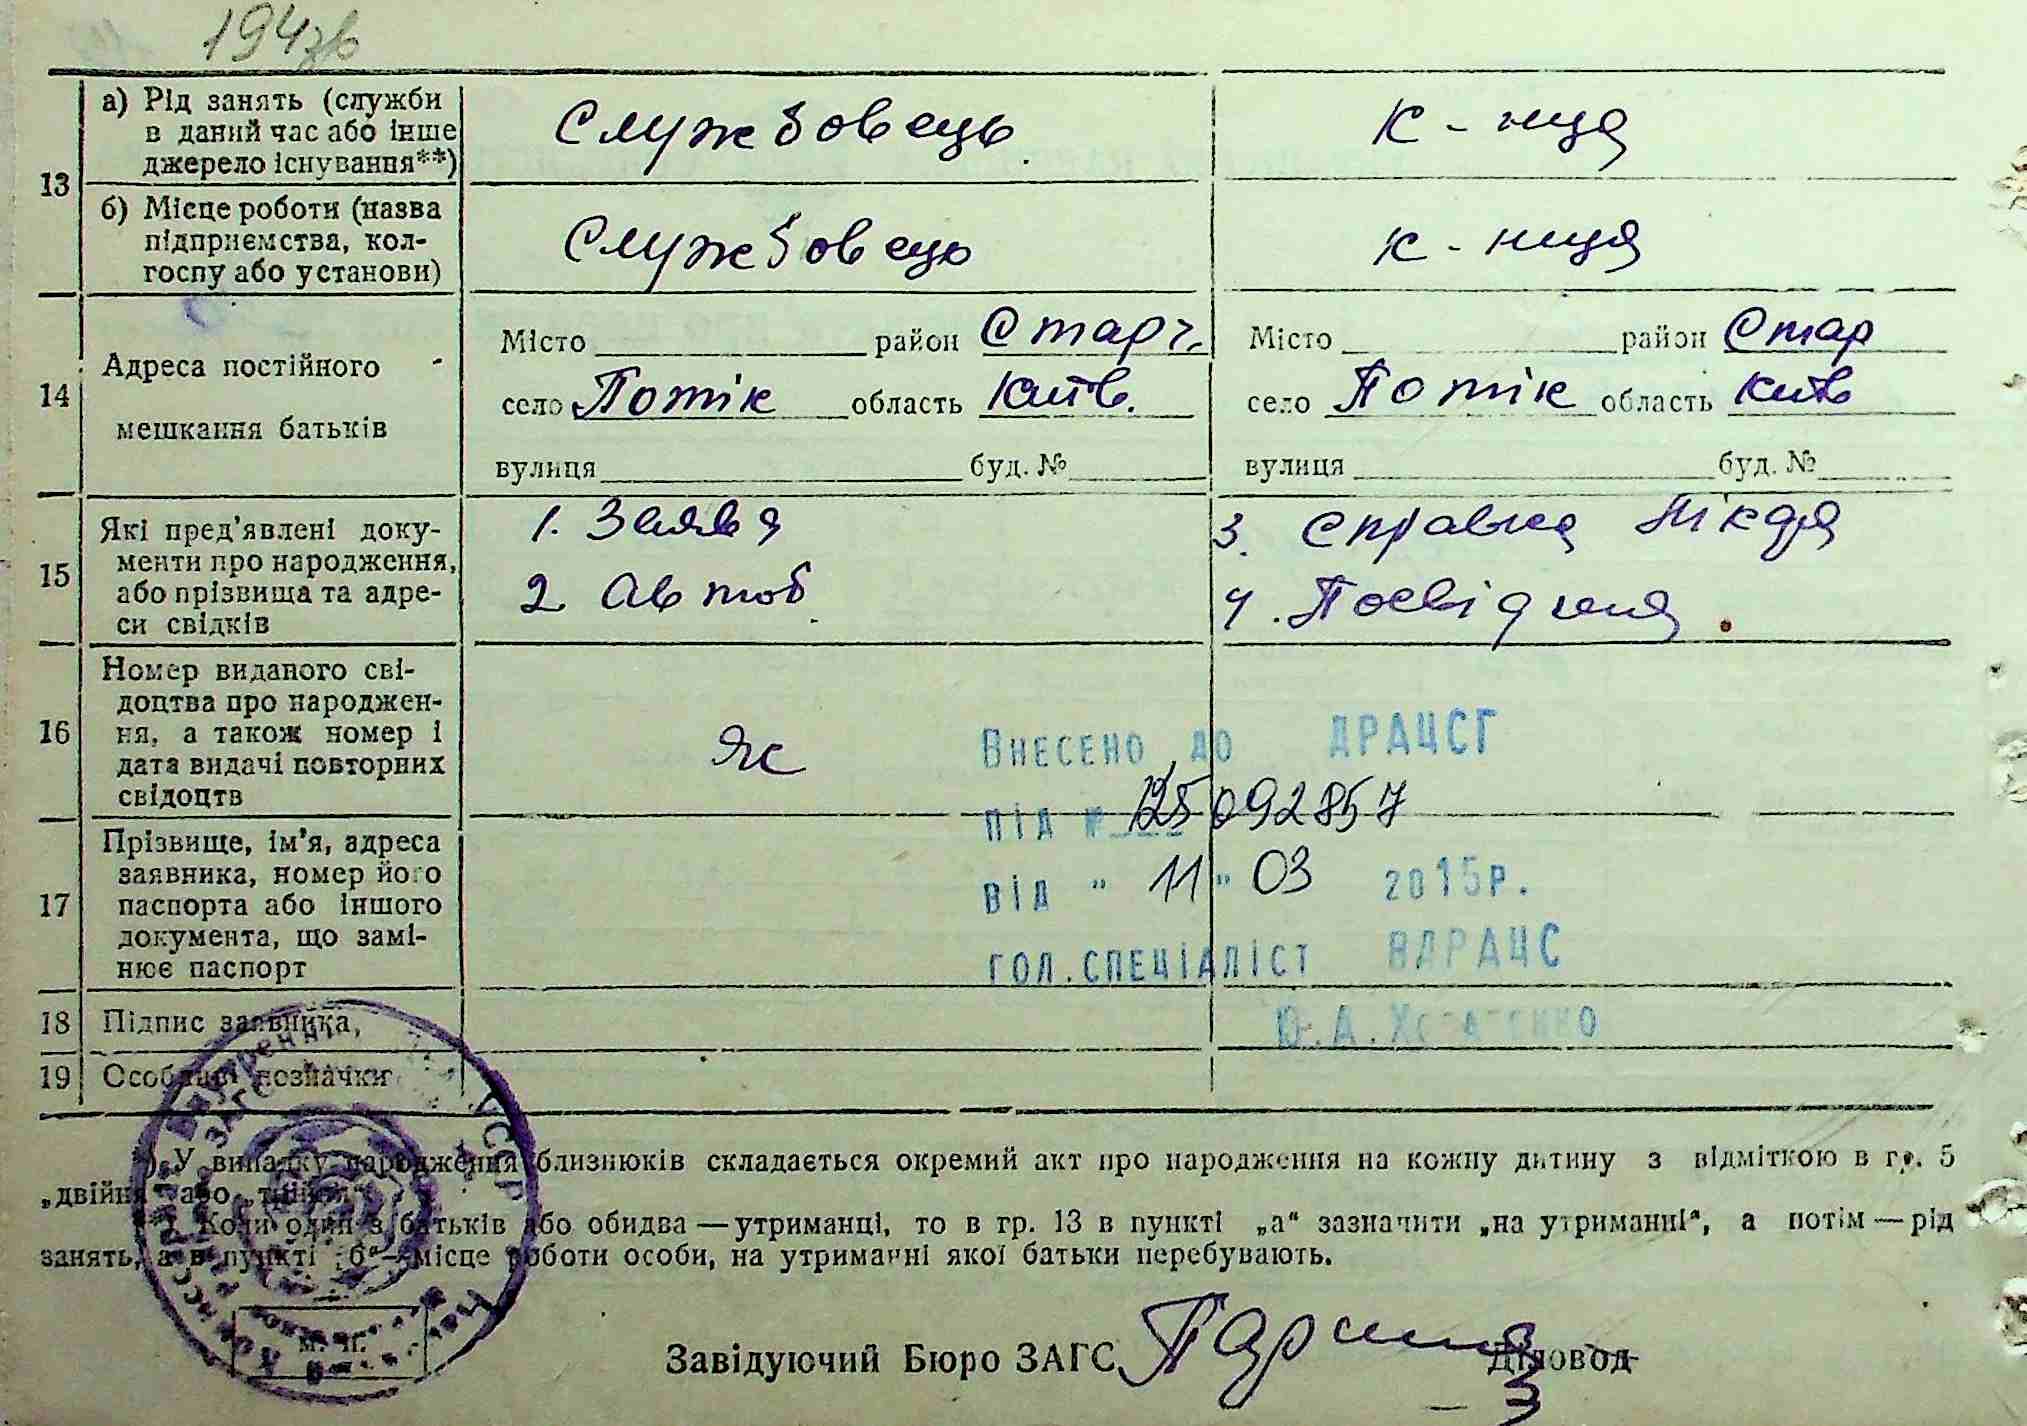 194зв
13
а) Рід занять (служби
в даний час або інше
джерело існування**)
Службовець
к-нця
б) Місце роботи (назва
підприємства, кол-
госпу або установи)
Службовець
к-ниця
14
Адреса постійного
мешкання батьків
Місто район Старч.
село Потік область Київ.
вулиця буд. №
Місто район Стар
село Потік область Київ
вулиця буд. №
15
Які пред'явлені доку-
менти про народження,
або прізвища та адре-
си свідків
1. Заява
2 Автоб
3. Справка лікаря
4. Посвідчня
16
Номер виданого сві-
доцтва про народжен-
ня, а також номер і
дата видачі повторних
свідоцтв
яс
Внесено до ДРАЦСГ
під № 125092857
від " 11 " 03 2015р.
гол.спеціаліст ВДРАЦС
Ю.А.
17
Прізвище, ім'я, адреса
заявника, номер його
паспорта або іншого
документа, що замі-
нює паспорт
18
Підпис заявника,
19
Особливі позначки
*) У випадку народження близнюків складається окремий акт про народження на кожну дитину з відміткою в гр. 5
„двійня" або „трійня".
**) Коли один з батьків або обидва — утриманці, то в гр. 13 в пункті „а" зазначити „на утриманні", а потім — рід
занять, а в пункті „б" — місце роботи особи, на утриманні якої батьки перебувають.
М. П.
Завідуючий Бюро ЗАГС
Діловод